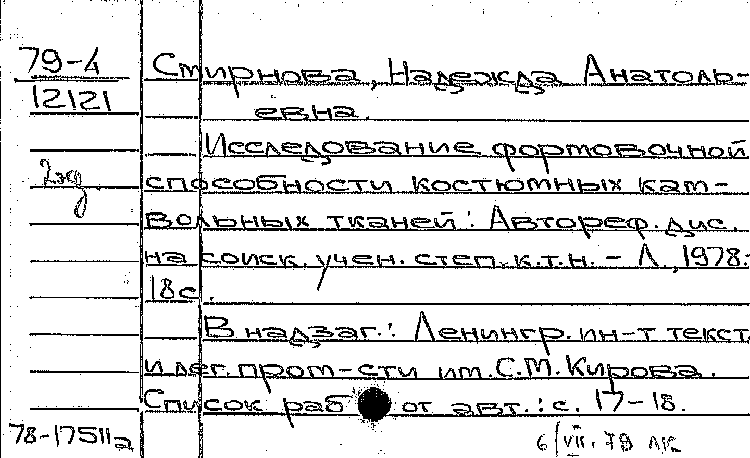 79-4
12121
Смирнова, Надежда Анатоль-
евна.
Исследование формовочной
способности костюмных кам-
вольных тканей: Автореф. дис.
на соиск. учен. степ. к.т.н. - Л., 1978.-
18с.
В надзаг.: Ленингр. ин-т текст.
и лег. пром-сти им. С.М. Кирова.
Список работ авт.: с. 17-18.
78-17511а
6/VII. 79